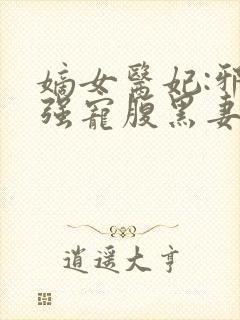 嫡女醫妃:邪
强寵腹黑妻
逍遥大亨